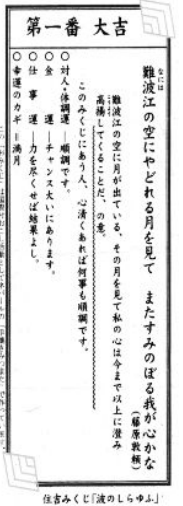 第一番 大吉
難波江の空にやどれる月を見て またすみのぼる我が心かな
なには
(藤原敦頼)
難波江の空に月が出ている、その月を見て私の心は今まで以上に澄み
高揚してくることだ、の意。
このみくじにあう人、心清くあれば何事も順調です。
○対人・体調運―順調です。
○金 運―チャンス大いにあります。
○仕 事 運―力を尽くせば結果よし。
○幸運のカギ=満月
住吉みくじ「波のしらゆふ」